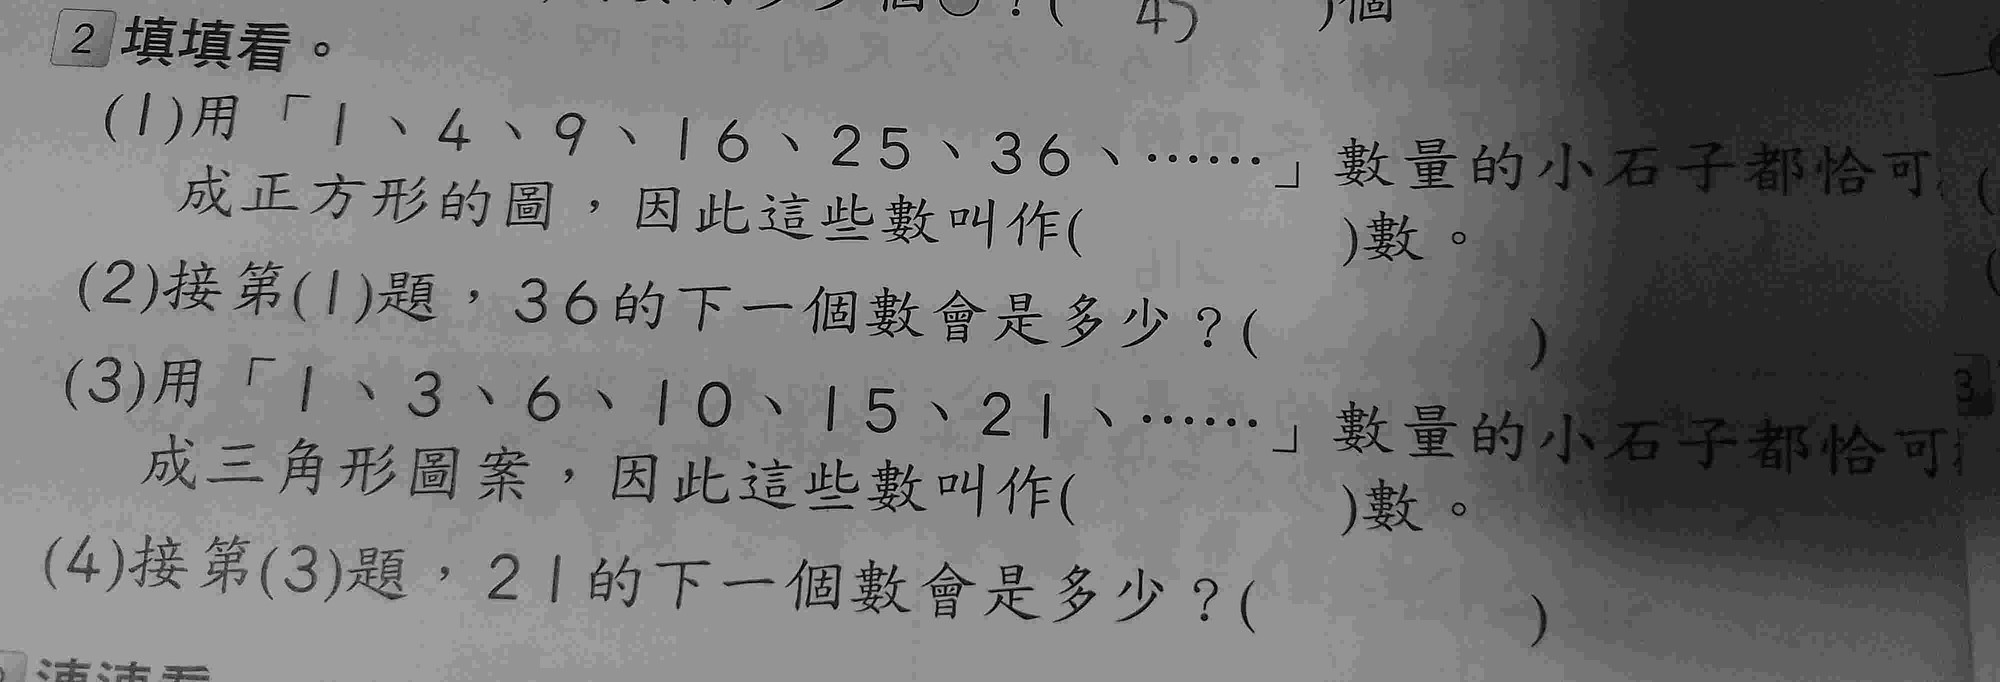 個○？( 45 )個
2 填填看。
(1)用「1、4、9、16、25、36、……」數量的小石子都恰可
成正方形的圖，因此這些數叫作( )數。
(2)接第(1)題，36的下一個數會是多少？( )
(3)用「1、3、6、10、15、21、……」數量的小石子都恰可
成三角形圖案，因此這些數叫作( )數。
(4)接第(3)題，21的下一個數會是多少？( )
3